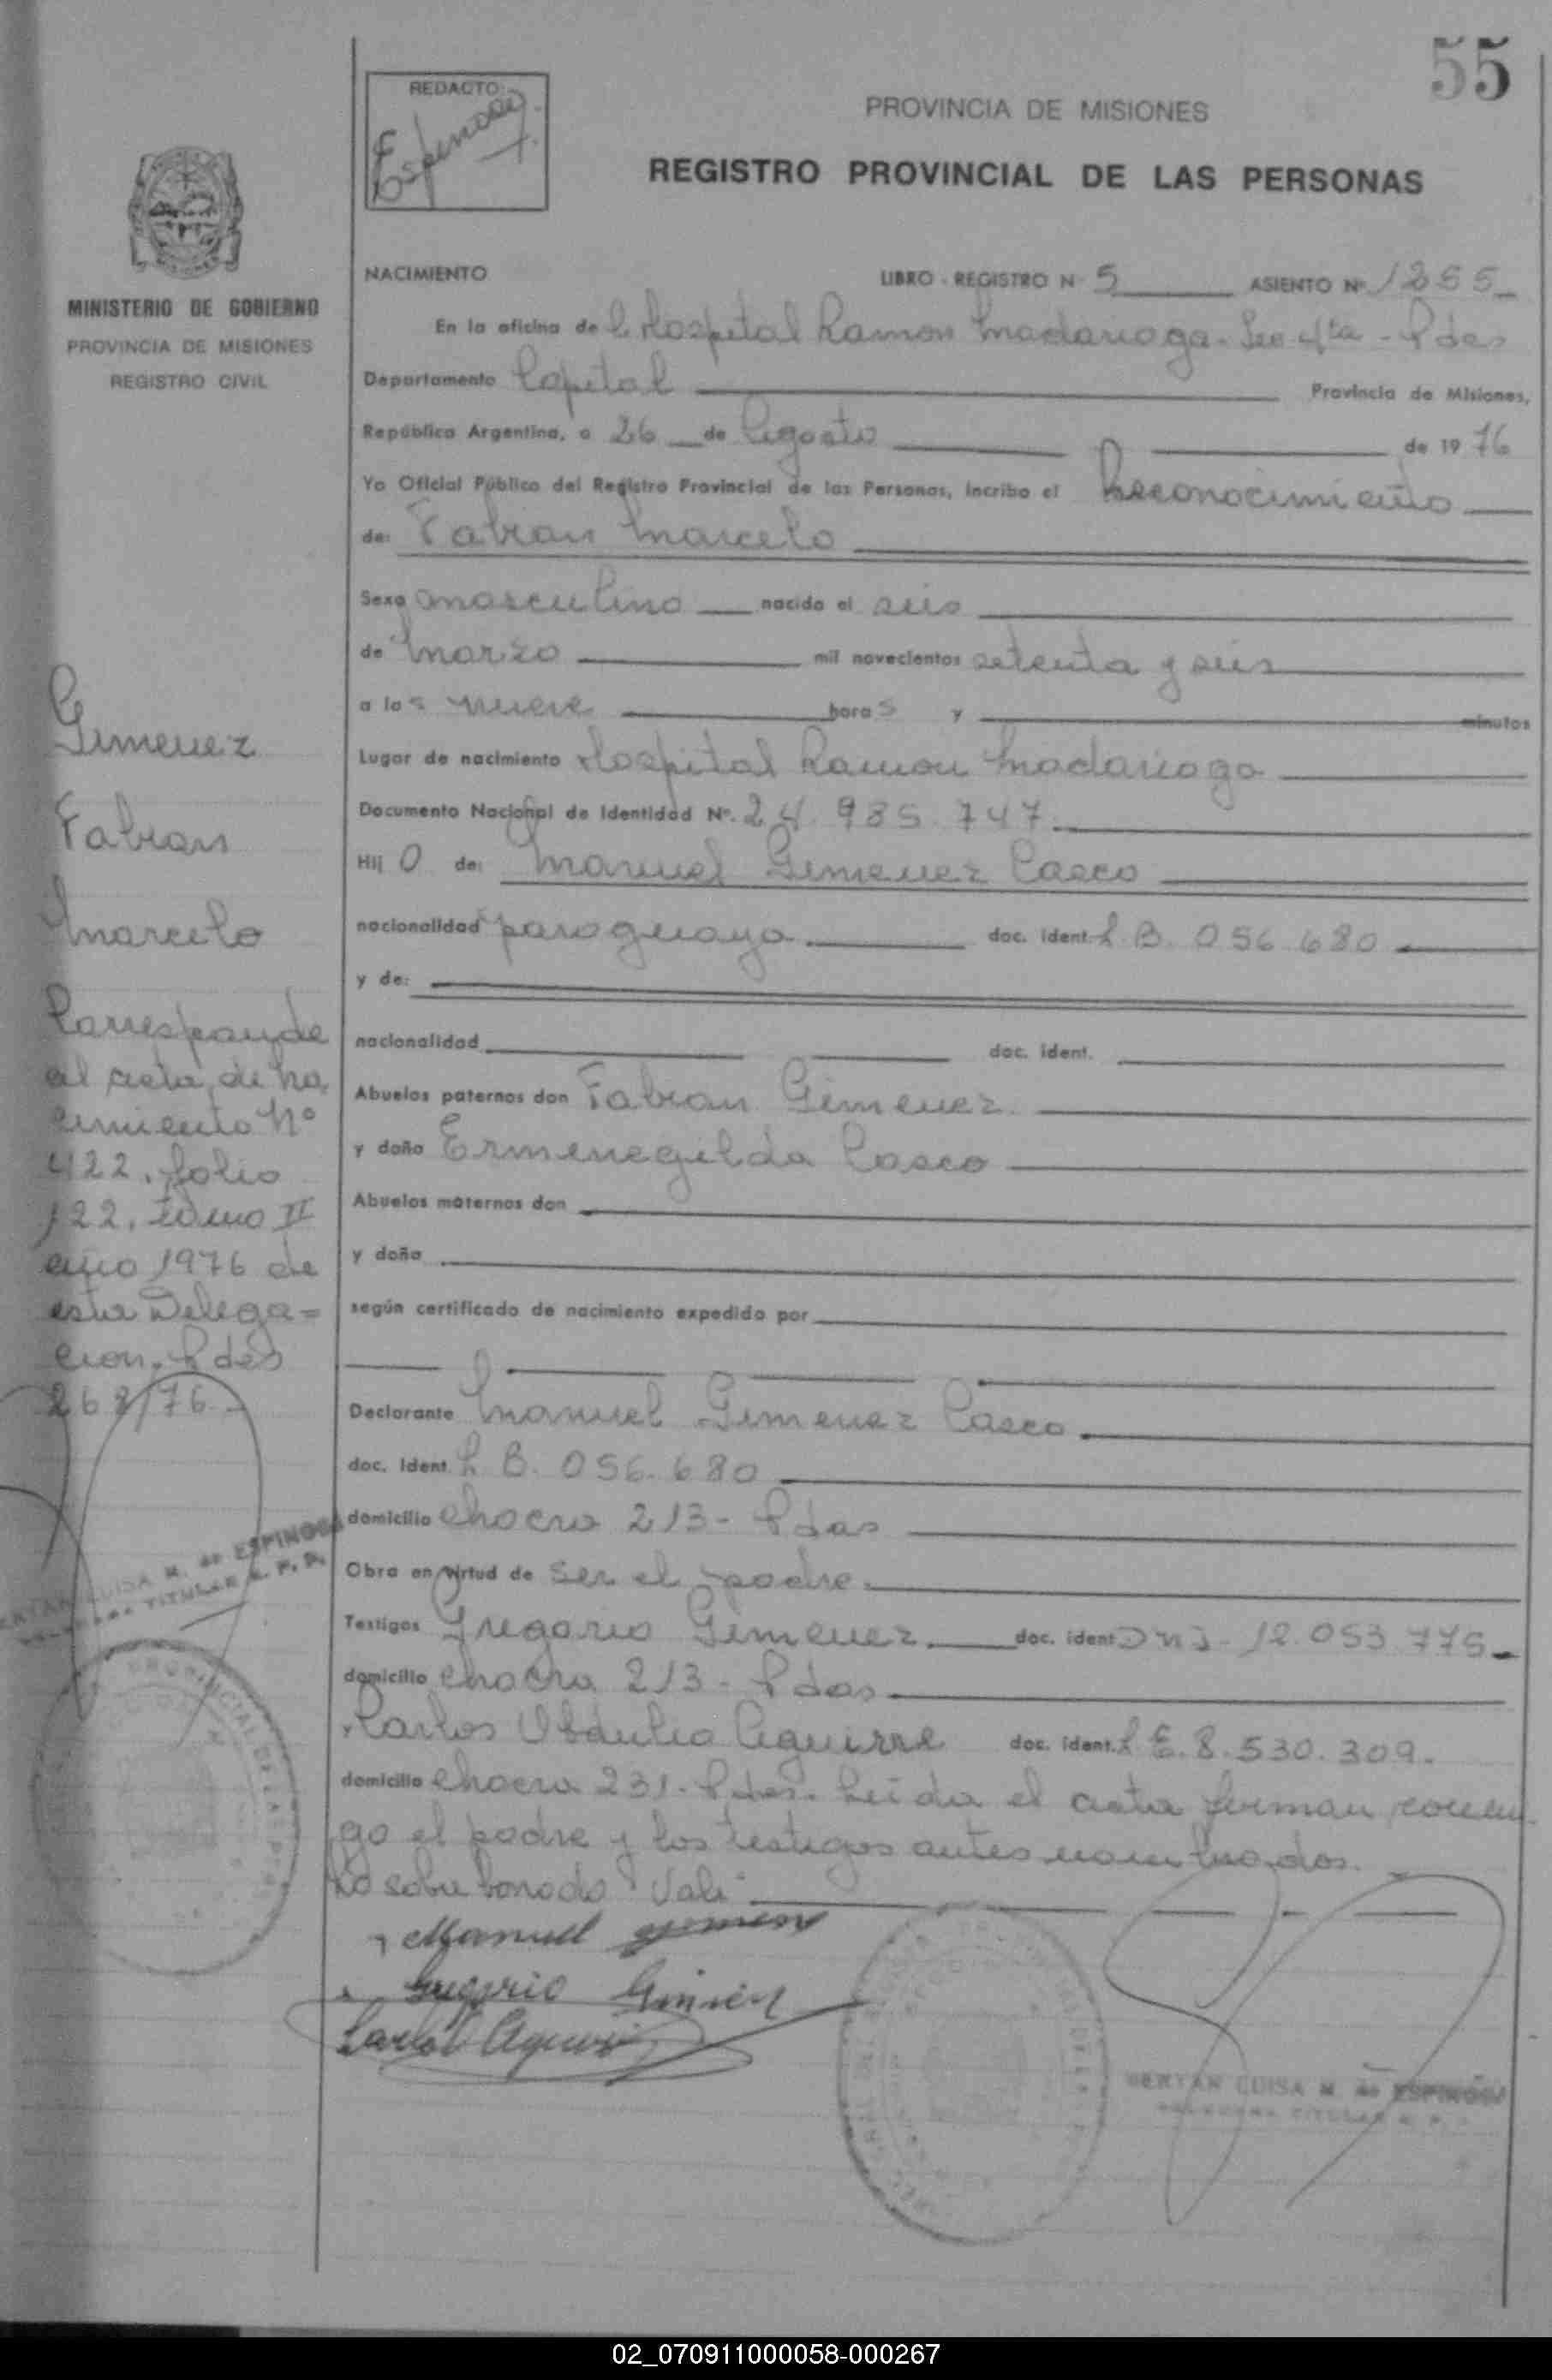 55
REDACTO:
Espinosa
PROVINCIA DE MISIONES
REGISTRO PROVINCIAL DE LAS PERSONAS
MINISTERIO DE GOBIERNO
PROVINCIA DE MISIONES
REGISTRO CIVIL
NACIMIENTO LIBRO - REGISTRO N 5 ASIENTO Nº
En la oficina de Hospital Ramon Madariaga - Sec 4ta - Pdas
Departamento Capital Provincia de Misiones,
República Argentina, a 26 de Agosto de 1976
Yo Oficial Público del Registro Provincial de las Personas, incribo el Reconocimiento
de: Fabian Marcelo
Sexo masculino nacido el seis
de Marzo mil novecientos setenta y seis
a las nueve horas y minutos
Lugar de nacimiento Hospital Ramon Madariaga
Documento Nacional de Identidad Nº. 24.985.747
Hij o de: Manuel Gimenez Casco
nacionalidad paraguaya doc. ident. L B. 056.680
y de:
nacionalidad doc. ident.
Abuelos paternos don Fabian Gimenez
y doña Ermenegilda Casco
Abuelos maternos don
y doña
según certificado de nacimiento expedido por
Declarante Manuel Gimenez Casco
doc. ident. L B. 056.680
domicilio chacra 213 - Pdas
Obra en virtud de ser el padre
Testigos Gregorio Gimenez doc. ident DNI - 12.053.775
domicilio chacra 213 - Pdas
Carlos Obdulio Aguirre doc. ident. L E. 8.530.309.
domicilio chacra 231 - Pdas. Leida el acta firman conmi
go el padre y los testigos antes nombrados.
sobre borrado Vale
Manuel Gimenez
Gregorio Gimenez
Carlos Aguirre
BERTAN LUISA M. de ESPINOSA
TITULAR R. P.
Gimenez
Fabian
Marcelo
Corresponde
al acta de na
cimiento Nº
422, folio
122, tomo II
año 1976 de
esta Delega=
cion. Pdas
268/76
LUISA M. de ESPINOSA
TITULAR R. P. P.
PROVINCIAL DE LAS
02_070911000058-000267